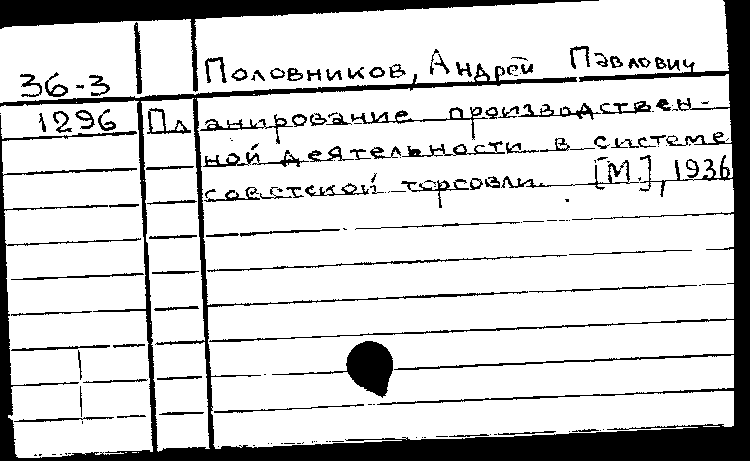 Половников, Андрей Павлович
36-3
1296 Планирование производствен-
ной деятельности в системе
советской торговли. [М.], 1936